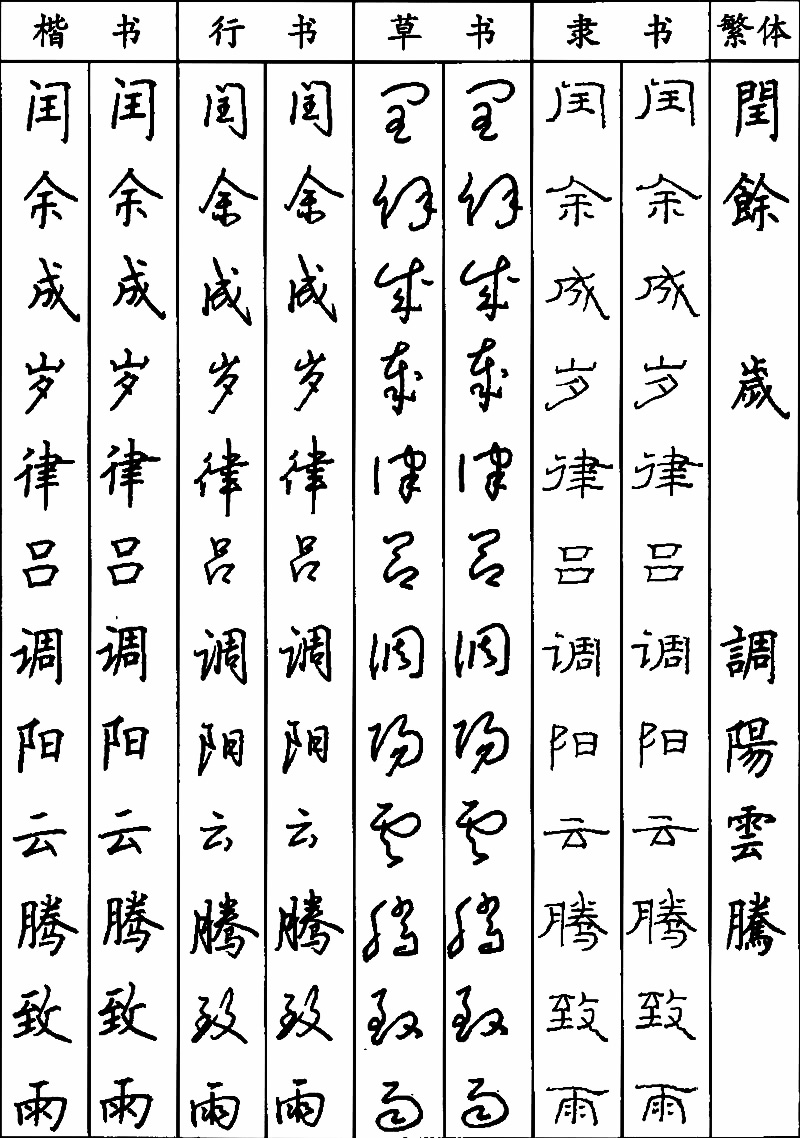 楷书 行书 草书 隶书 繁体
闰 闰 闰 闰 闰 闰 闰 闰 閏
余 余 余 余 余 余 余 余 餘
成 成 成 成 成 成 成 成
岁 岁 岁 岁 岁 岁 岁 岁 歲
律 律 律 律 律 律 律 律
吕 吕 吕 吕 吕 吕 吕 吕
调 调 调 调 调 调 调 调 調
阳 阳 阳 阳 阳 阳 阳 阳 陽
云 云 云 云 云 云 云 云 雲
腾 腾 腾 腾 腾 腾 腾 腾 騰
致 致 致 致 致 致 致 致
雨 雨 雨 雨 雨 雨 雨 雨